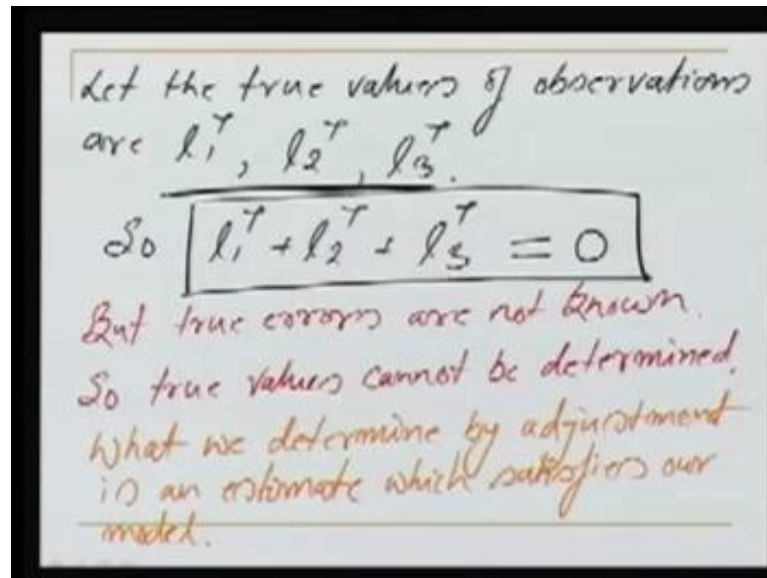 Let the true values of observations
are l₁ᵀ, l₂ᵀ, l₃ᵀ.
So l₁ᵀ + l₂ᵀ + l₃ᵀ = 0
But true errors are not known.
So true values cannot be determined.
What we determine by adjustment
is an estimate which satisfies our
model.